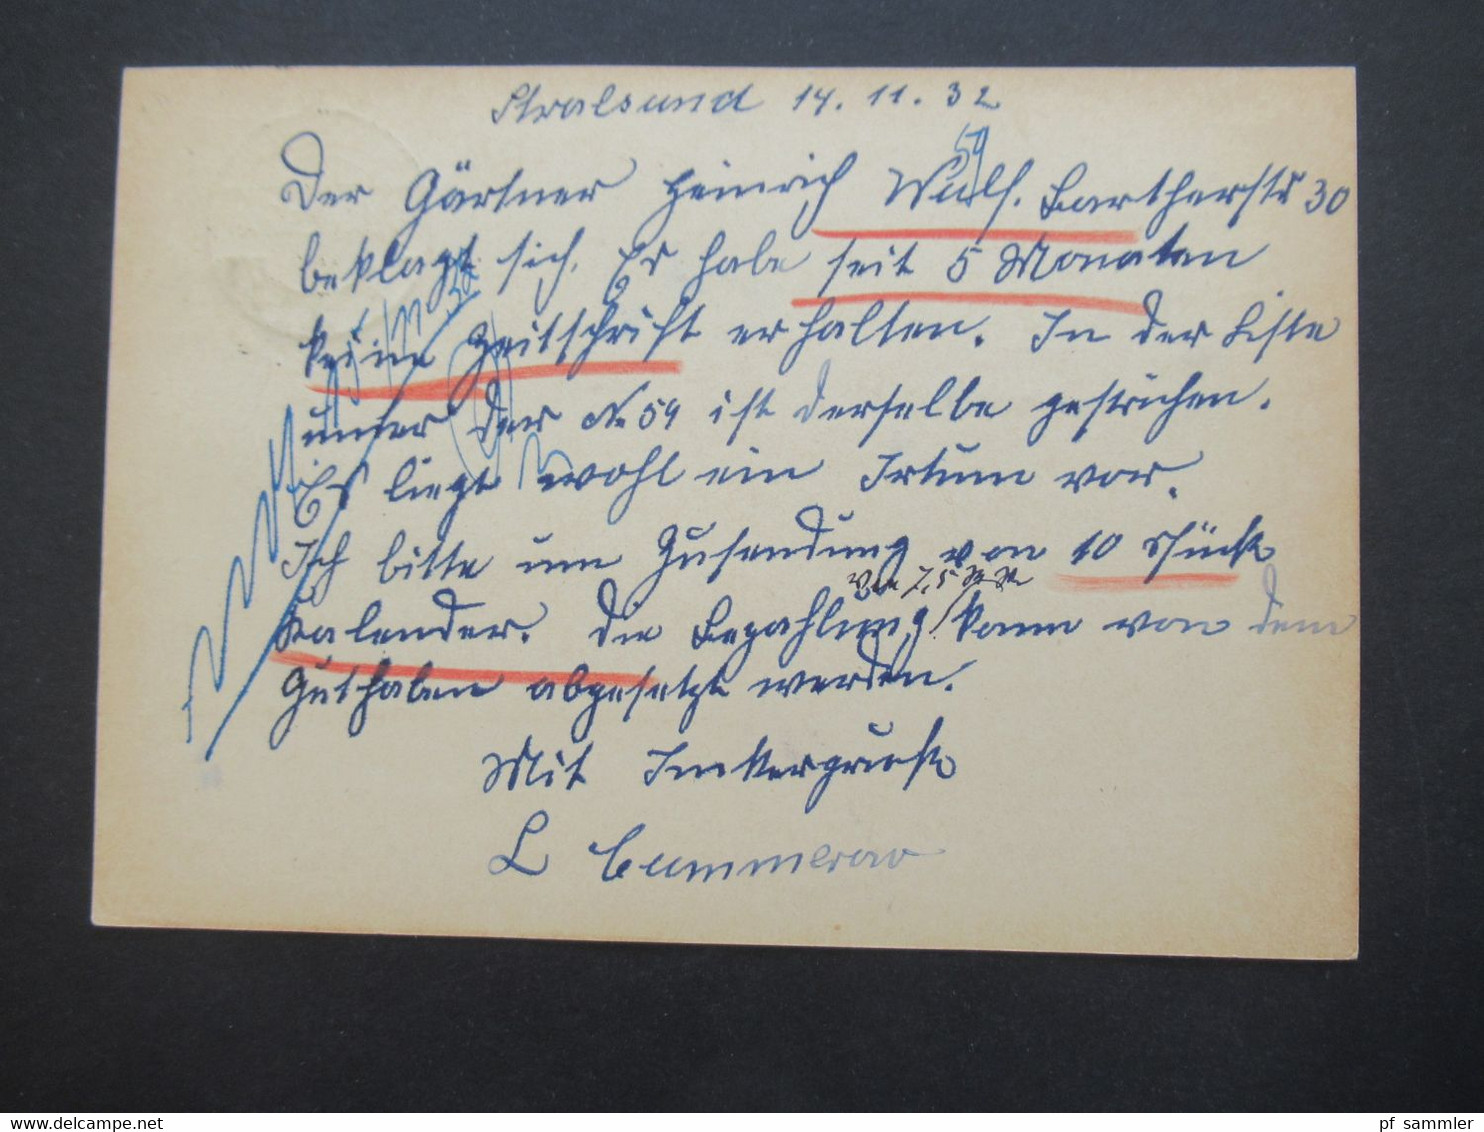 Stralsund 14. 11. 32
59
Der Gärtner Heinrich Wulf. Bartherstr 30
beklagt sich. Er habe seit 5 Monaten
keine Zeitschrift erhalten. In der Liste
unter der No 59 ist derselbe gestrichen.
Es liegt wohl ein Irtum vor.
Ich bitte um Zusendung von 10 Stück
von 7,5
Kalender. Die Bezahlung kann von dem
Guthaben abgesetzt werden.
Mit Imkergruß
L Cummerow
pf_sammler
www.delcampe.net